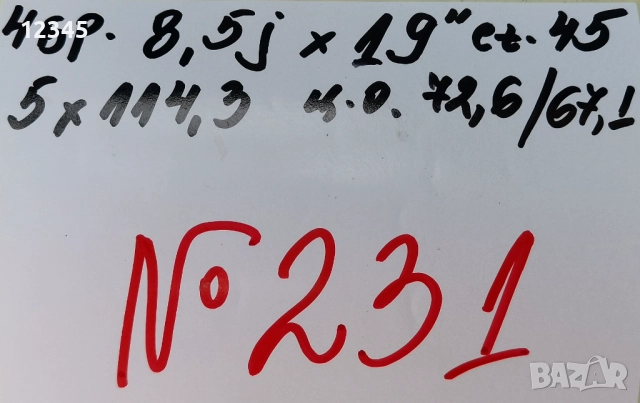 12345
4бр. 8,5j x 19" et. 45
5 x 114,3 ц.о. 72,6/67,1
№ 231
BAZAR